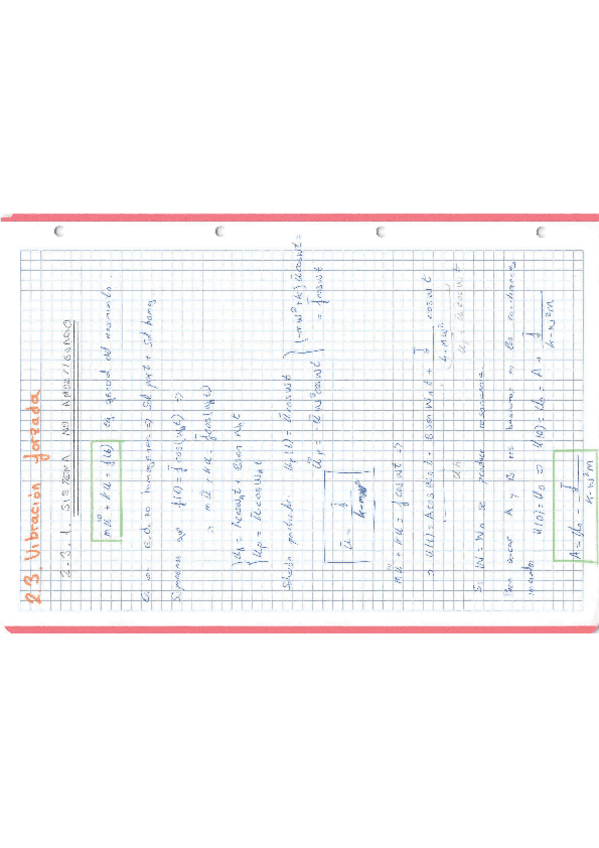 2.3. Vibración forzada
2.3.1. SISTEMA NO AMORTIGUADO
mü + ku = f(t) ec. general del movimiento.
Es una e.d.o no homogénea => Sol. part + Sol. homog
Suponemos que f(t) = f̄ cos(ωt) =>
=> mü + ku = f̄ cos(ωt)
{ u_h = A cos ω_n t + B sen ω_n t
{ u_p = ū cos ω t
Solución particular u_p(t) = ū cos ωt } (-mω² + k) ū cos ωt =
ü_p = -ū ω² cos ωt } = f̄ cos ωt
ū = f̄ / (k - mω²)
mü + ku = f̄ cos ωt =>
=> u(t) = A cos ω_n t + B sen ω_n t + f̄ / (k - mω²) cos ω t
u_h u_p = ū cos ω t
Si ω = ω_n se produce resonancia
Para sacar A y B nos basamos en las condiciones
iniciales u(0) = u_0 => u(0) = u_0 = A + f̄ / (k - ω²m)
A = u_0 - f̄ / (k - ω²m)